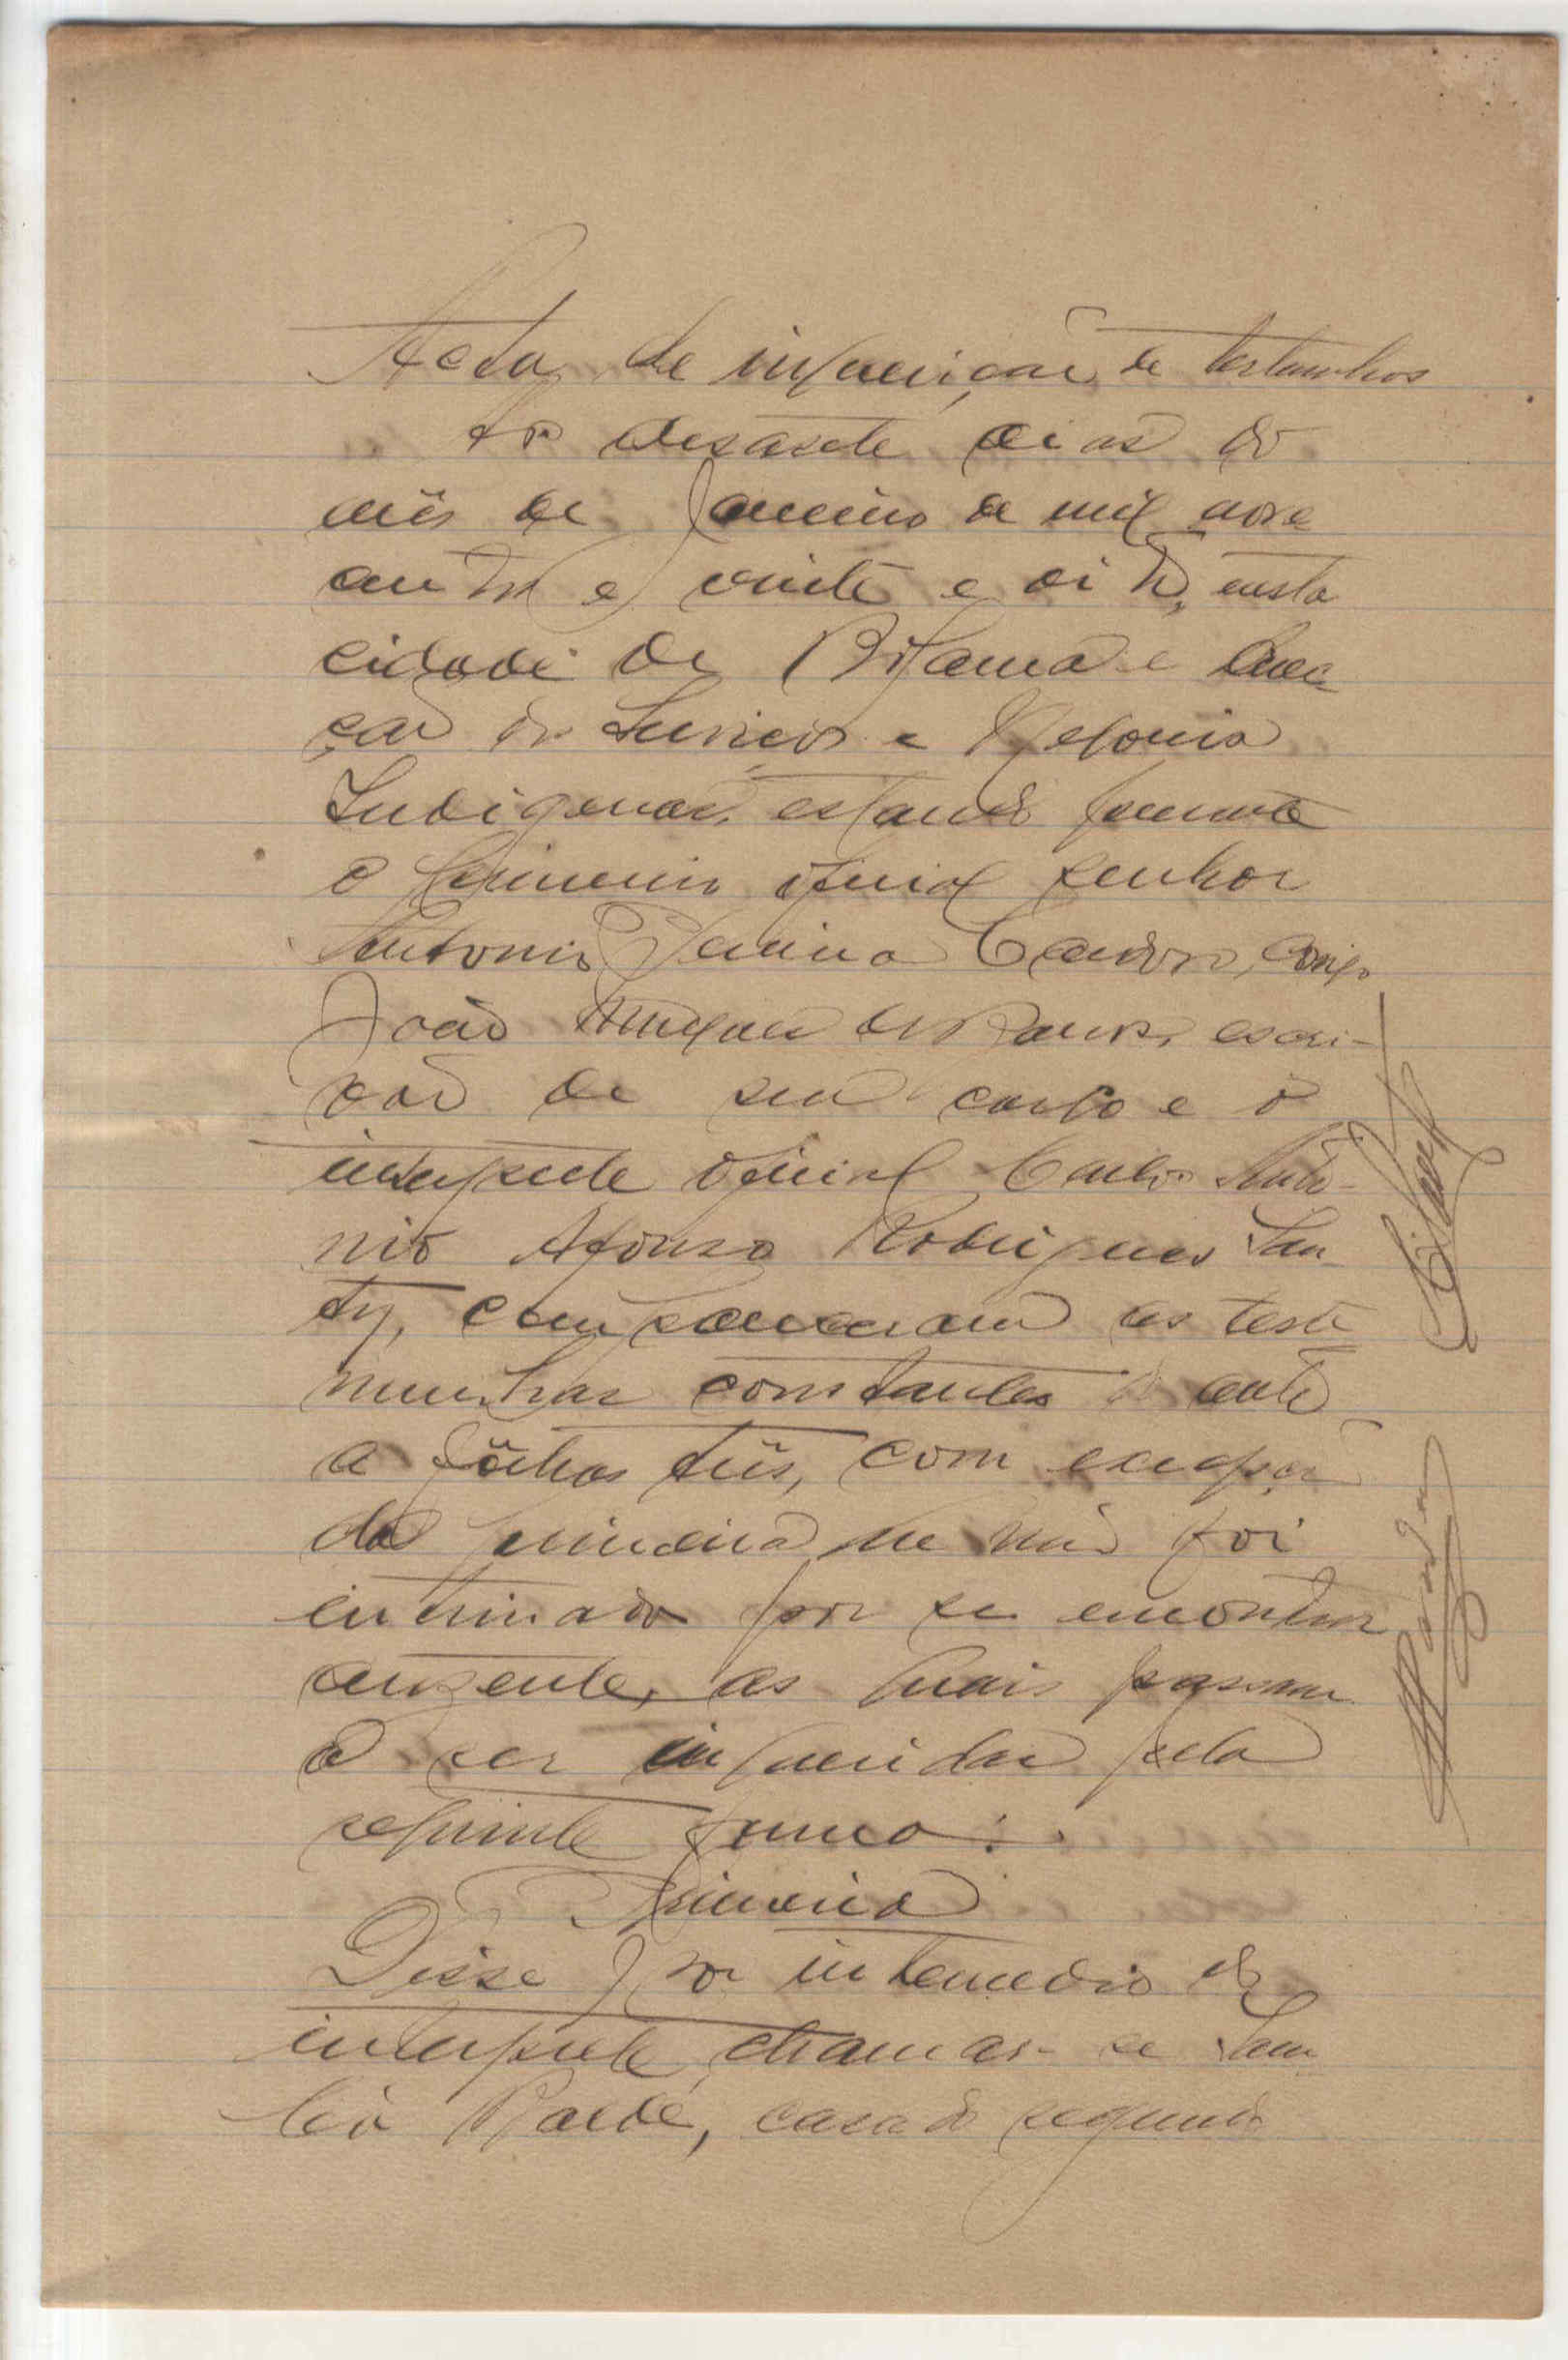 Acta de inquirição de testemunhas
Ao desasete dias do
mês de Janeiro de mil nove
centos e vinte e oito, nesta
cidade de Bolama e Direc
ção dos Serviços e Negocios
Indigenas, estando presente
o primeiro oficial senhor
Antonio Pereira Cardoso, comigo
João de Barros, escri-
vão de seu cargo e o
interprete oficial Carlos Antó-
nio Afonso Rodrigues San
ty, compareceram as teste
munhas constantes do auto
a folhas três, com excepção
da primeira que não foi
intimada por se encontrar
ausente, as quais passam
a ser inqueridas pela
seguinte forma:
Primeira
Disse por intermedio do
interprete, chamar-se Sam
Baldé, casado segundo